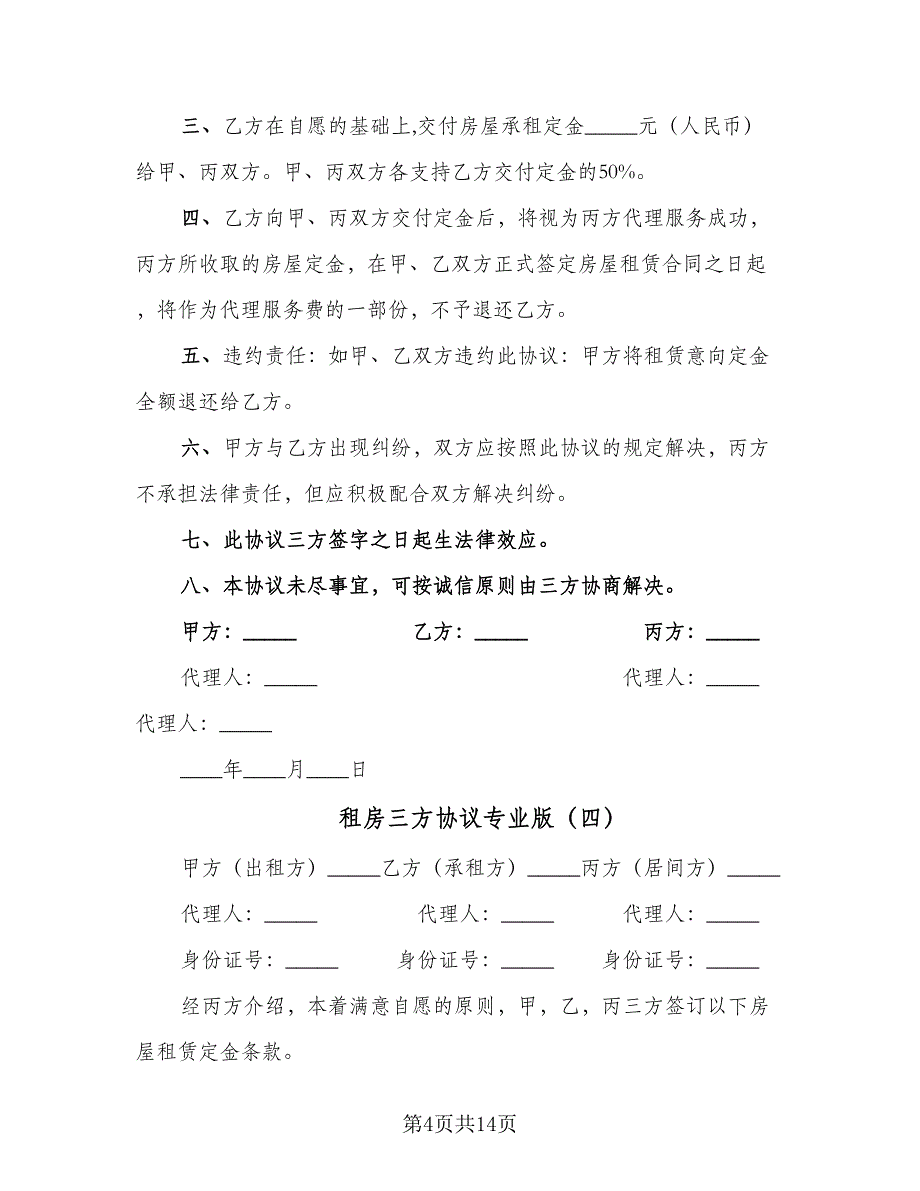 三、乙方在自愿的基础上,交付房屋承租定金_____元（人民币）
给甲、丙双方。甲、丙双方各支持乙方交付定金的50%。
四、乙方向甲、丙双方交付定金后，将视为丙方代理服务成功，
丙方所收取的房屋定金，在甲、乙双方正式签定房屋租赁合同之日起
，将作为代理服务费的一部份，不予退还乙方。
五、违约责任：如甲、乙双方违约此协议：甲方将租赁意向定金
全额退还给乙方。
六、甲方与乙方出现纠纷，双方应按照此协议的规定解决，丙方
不承担法律责任，但应积极配合双方解决纠纷。
七、此协议三方签字之日起生法律效应。
八、本协议未尽事宜，可按诚信原则由三方协商解决。
甲方：_____ 乙方：_____ 丙方：_____
代理人：_____ 代理人：_____
代理人：_____
____年____月____日
租房三方协议专业版（四）
甲方（出租方）_____乙方（承租方）_____丙方（居间方）_____
代理人：_____ 代理人：_____ 代理人：_____
身份证号：_____ 身份证号：_____ 身份证号：_____
经丙方介绍，本着满意自愿的原则，甲，乙，丙三方签订以下房
屋租赁定金条款。
第4页共14页